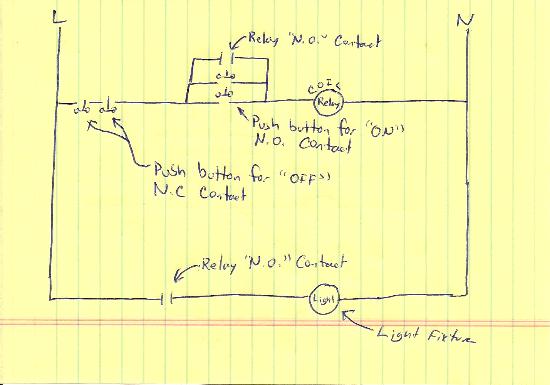 L
N
Relay "N.O." Contact
COIL
Relay
Push button for "ON"
N.O. Contact
Push button for "OFF"
N.C Contact
Relay "N.O." Contact
Light
Light Fixture